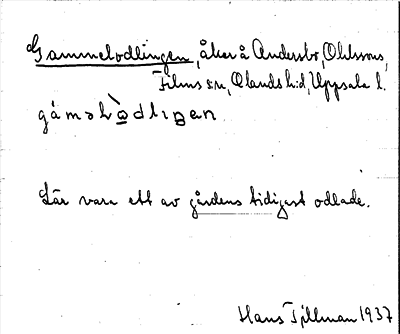 Gammelodlingen, åker å Andersbo, Ohlssons,
Films sn, Olands hd, Uppsala l.
gáməlò̲dlıŋən.
Lär vara ett av gårdens tidigast odlade.
Hans Tjillman 1937